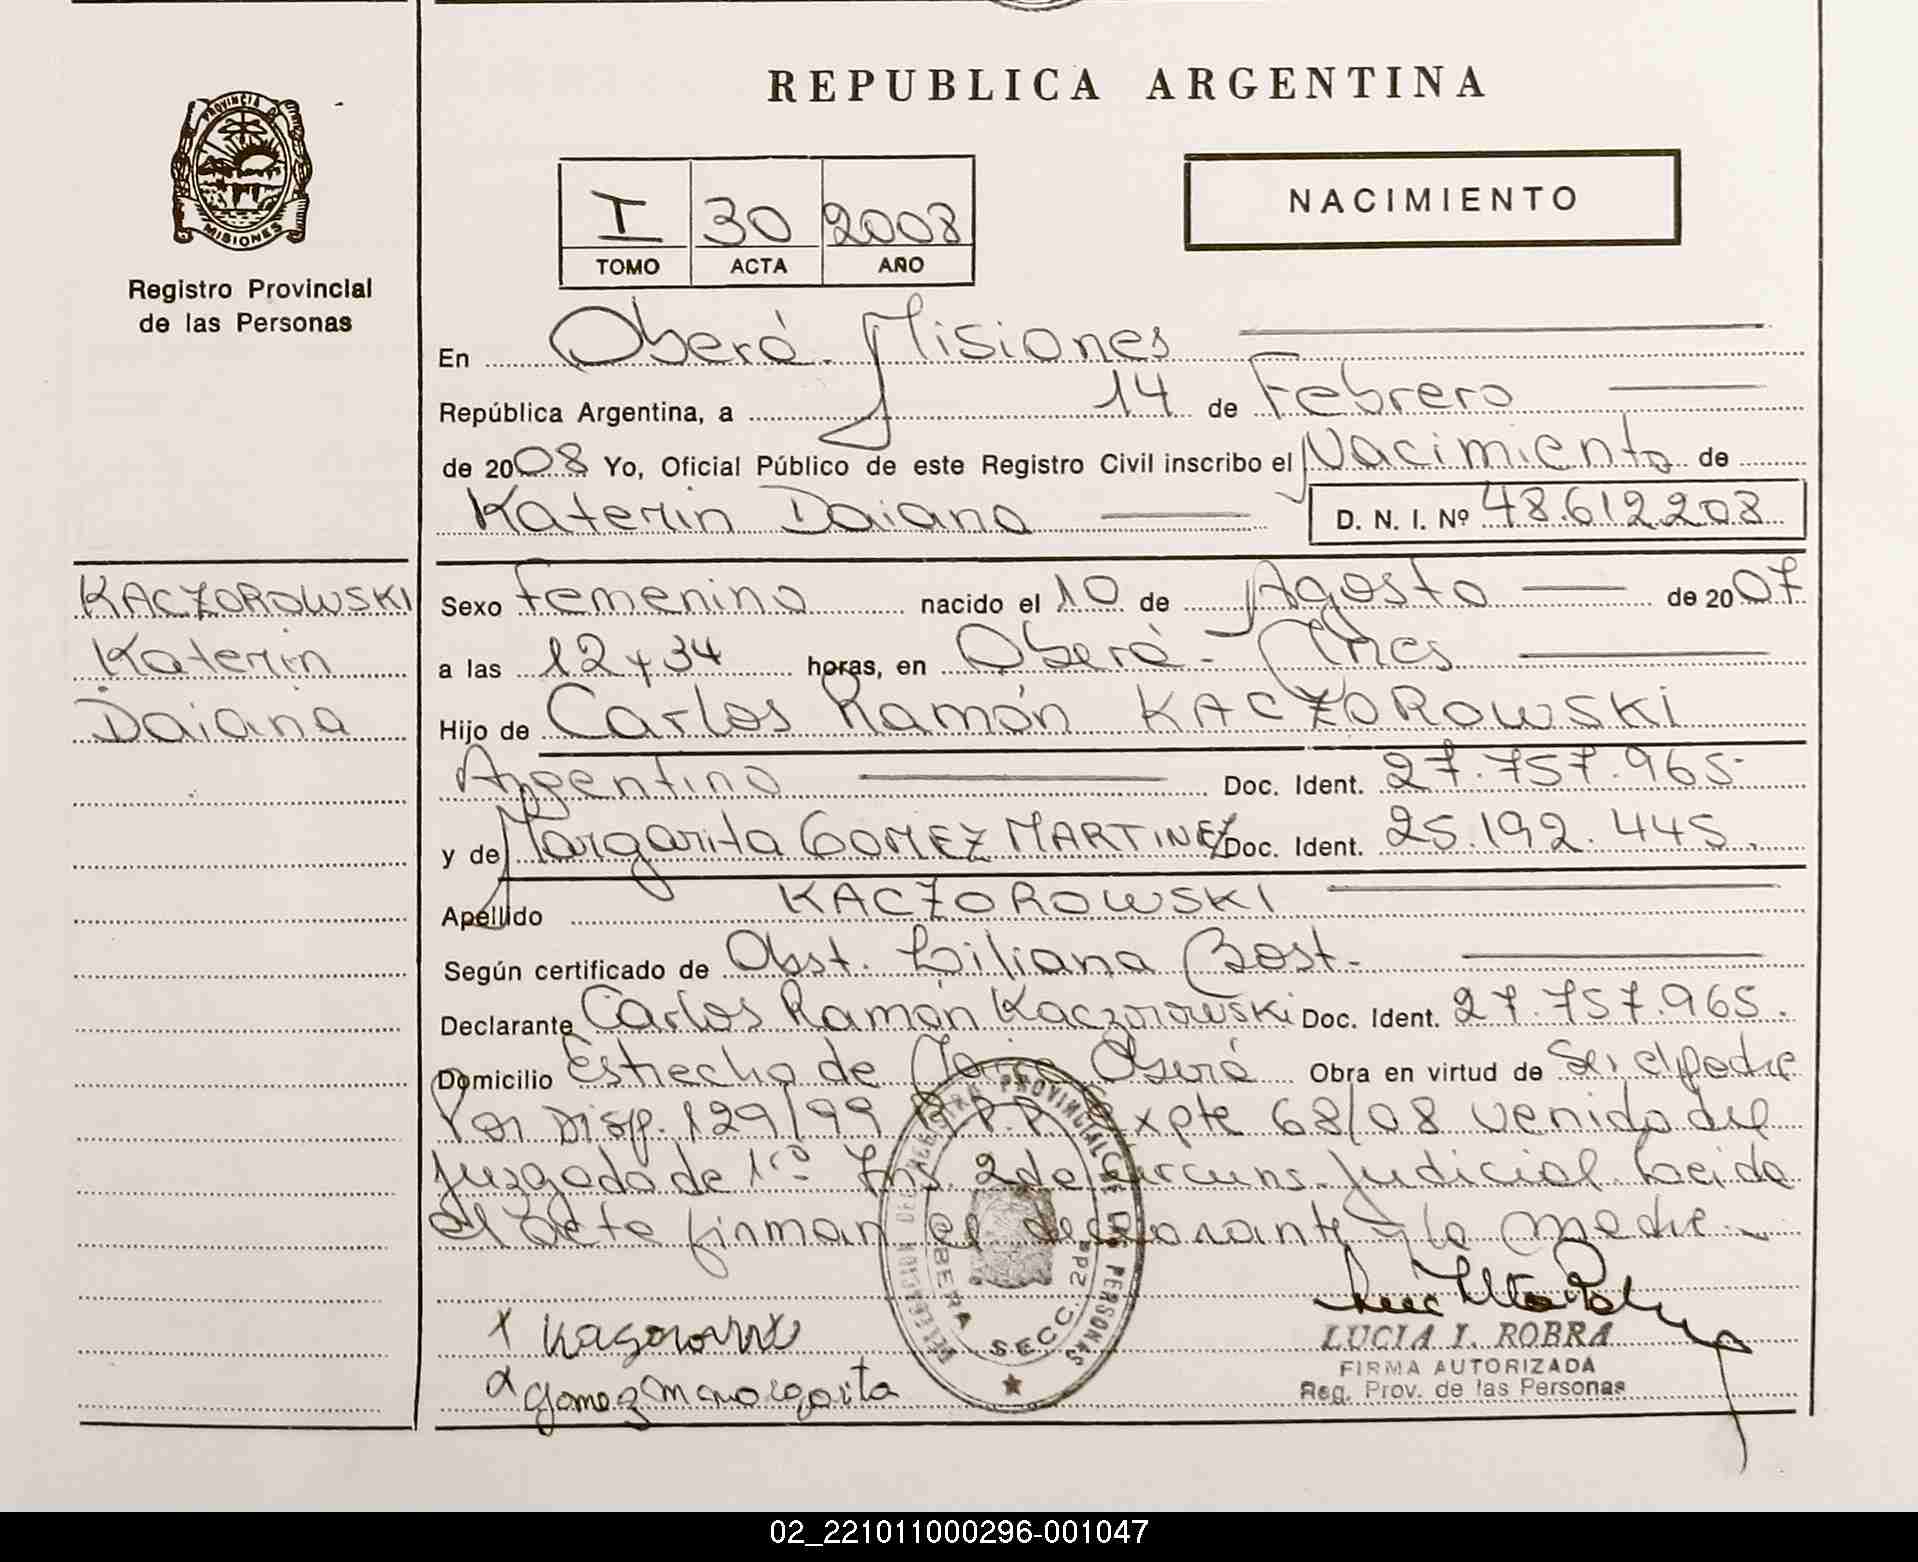 REPUBLICA ARGENTINA
PROVINCIA DE MISIONES
Registro Provincial
de las Personas
I 30 2008
TOMO ACTA AÑO
NACIMIENTO
En Oberá - Misiones
República Argentina, a 14 de Febrero
de 2008 Yo, Oficial Público de este Registro Civil inscribo el Nacimiento de
Katerin Daiana D. N. I. Nº 48.612.208
KACZOROWSKI
Katerin
Daiana
Sexo Femenino nacido el 10 de Agosto de 2007
a las 12 y 34 horas, en Oberá - Mnes
Hijo de Carlos Ramón KACZOROWSKI
Argentino Doc. Ident. 27.757.965
y de Margarita GOMEZ MARTINEZ Doc. Ident. 25.192.445.
Apellido KACZOROWSKI
Según certificado de Obst. Liliana Bost.
Declarante Carlos Ramón Kaczorowski Doc. Ident. 27.757.965.
Domicilio Estrecho de Oberá Obra en virtud de Ser el padre
Por Disp. 129/99 R.P.P. Expte 68/08 venido del
Juzgado de 1ra Ins. 2da Circuns. Judicial Leida
el acta firman el declarante y la madre
DELEGACION DEL REGISTRO PROVINCIAL DE LAS PERSONAS
OBERA SECC. 2da
x
x Gomez Margarita
LUCIA I. ROBRA
FIRMA AUTORIZADA
Reg. Prov. de las Personas
02_221011000296-001047